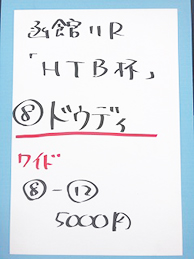 函館11R
「HTB杯」
⑧ドウディ
ワイド
⑧－⑫
5000円